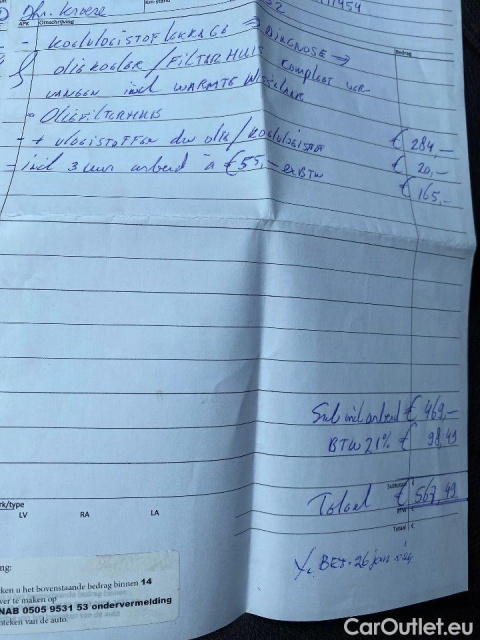 Dhr. Kroeze
Km-stand
APK Omschrijving Bedrag
- KOELVLOEISTOF LEKKAGE => DIAGNOSE =>
OLIEKOELER / FILTERHUIS COMPLEET VER-
VANGEN incl WARMTE WISSELAAR
OLIEFILTERHUIS € 284,-
+ VLOEISTOFFEN div olie / KOELVLOEISTOF € 20,-
- incl 3 uur arbeid à € 55,- ex BTW € 165,-
Sub incl arbeid € 469,-
BTW 21% € 98,49
Subtotaal €
Totaal € 567,49
BTW €
Totaal €
rk/type
LV RA LA
BET. 26 jan
ng:
ken u het bovenstaande bedrag binnen 14
ver te maken op
NAB 0505 9531 53 ondervermelding
nteken van de auto.
CarOutlet.eu